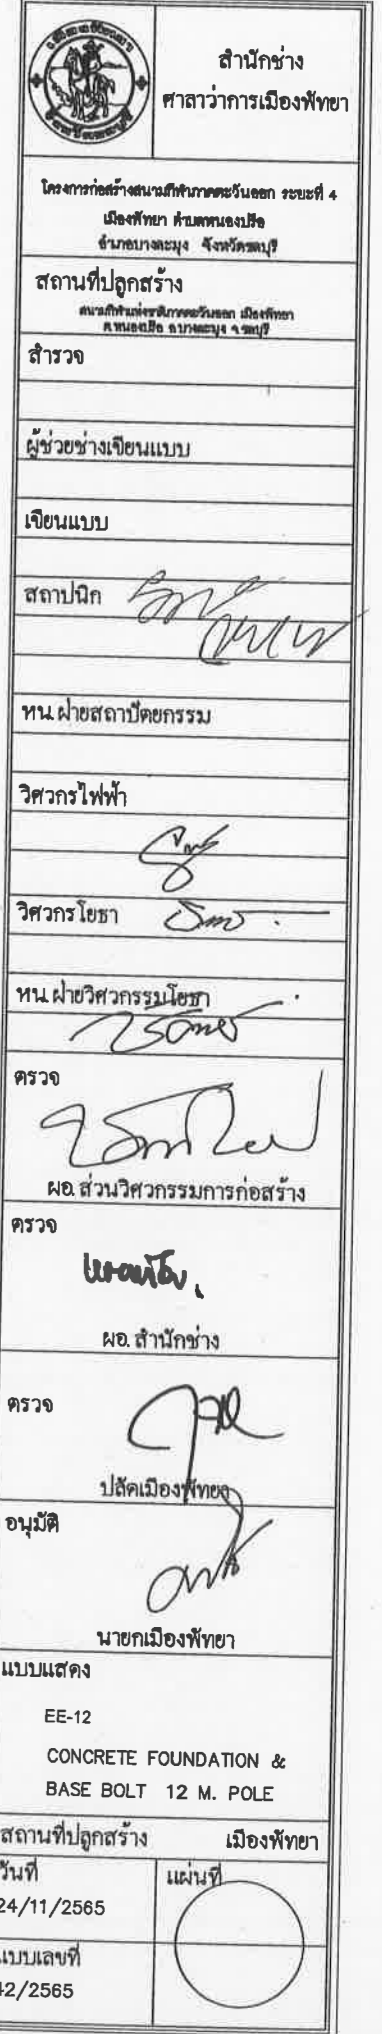 สำนักช่าง
ศาลาว่าการเมืองพัทยา
โครงการก่อสร้างสนามกีฬาภาคตะวันออก ระยะที่ 4
เมืองพัทยา ตำบลหนองปรือ
อำเภอบางละมุง จังหวัดชลบุรี
สถานที่ปลูกสร้าง
สนามกีฬาแห่งชาติภาคตะวันออก เมืองพัทยา
ต.หนองปรือ อ.บางละมุง จ.ชลบุรี
สำรวจ
ผู้ช่วยช่างเขียนแบบ
เขียนแบบ
สถาปนิก
หน.ฝ่ายสถาปัตยกรรม
วิศวกรไฟฟ้า
วิศวกรโยธา
หน.ฝ่ายวิศวกรรมโยธา
ตรวจ
ผอ.ส่วนวิศวกรรมการก่อสร้าง
ตรวจ
ผอ.สำนักช่าง
ตรวจ
ปลัดเมืองพัทยา
อนุมัติ
นายกเมืองพัทยา
แบบแสดง
EE-12
CONCRETE FOUNDATION &
BASE BOLT 12 M. POLE
สถานที่ปลูกสร้าง เมืองพัทยา
วันที่ แผ่นที่
24/11/2565
แบบเลขที่
42/2565